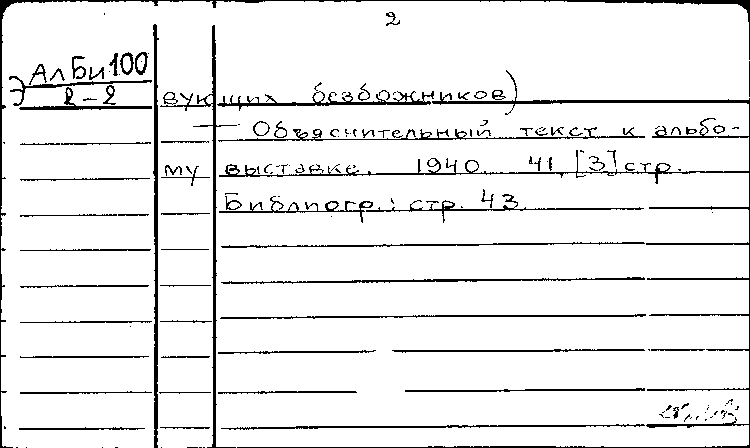 2
АлБи100
Э 2-2
вующих безбожников)
— Объяснительный текст к альбо-
му выставке. 1940. 41, [3] стр.
Библиогр.: стр. 43.